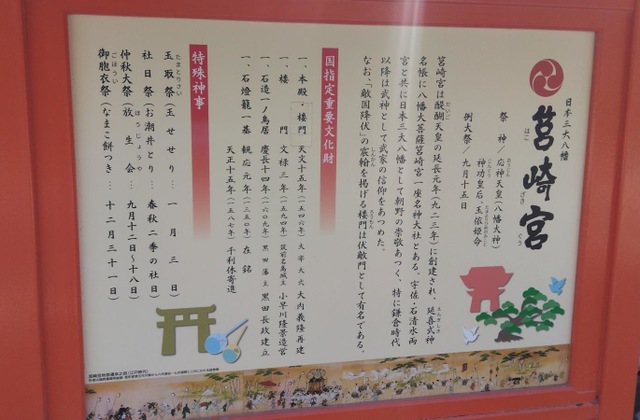 日本三大八幡
筥崎宮
はこ ざき ぐう
祭神/応神天皇(八幡大神)
神功皇后、玉依姫命
例大祭/九月十五日
筥崎宮は醍醐天皇の延長元年(九二三年)に創建され、延喜式神
名帳に八幡大菩薩筥崎宮一座名神大社とある。宇佐・石清水両
宮と共に日本三大八幡として朝野の崇敬あつく、特に鎌倉時代
以降は武神として武家の信仰をあつめた。
なお、「敵国降伏」の宸翰を掲げる楼門は伏敵門として有名である。
国指定重要文化財
一、本殿・楼門 天文十五年(一五四六年) 太宰大弐 大内義隆再建
一、楼門 文禄三年(一五九四年) 筑前名島城主 小早川隆景造営
一、石造一ノ鳥居 慶長十四年(一六〇九年) 黒田藩主 黒田長政建立
一、石燈籠一基 観応元年(一三五〇年) 在銘
天正十五年(一五八七年) 千利休寄進
特殊神事
玉取祭(玉せせり)… 一月三日
たまとりさい
社日祭(お潮井とり)… 春秋二季の社日
仲秋大祭(放生会)… 九月十二日〜十八日
ほうじょうや
御胞衣祭(なまこ餅つき)… 十二月三十一日
ごほうい